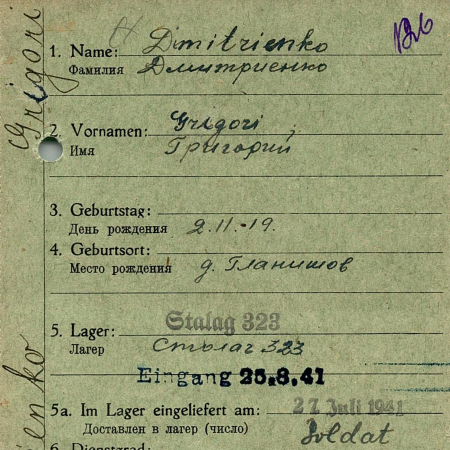 126
1. Name: Dmitrienko
Фамилия Дмитриенко
2. Vornamen: Grigori
Имя Григорий
3. Geburtstag:
День рождения 2.11.19.
4. Geburtsort:
Место рождения д. Гланишов
5. Lager: Stalag 323
Лагерь Сталаг 323
Eingang 25.8.41
5a. Im Lager eingeliefert am: 27. Juli 1941
Доставлен в лагер (число) Soldat
6. Dienstgrad:
Grigori
ienko